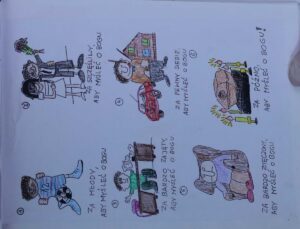 ZA MŁODY,
ABY MYŚLEĆ O BOGU
ZA SZCZĘŚLIWY,
ABY MYŚLEĆ O BOGU
ZA BARDZO ZAJĘTY,
ABY MYŚLEĆ O BOGU
ZA PEWNY SIEBIE,
ABY MYŚLEĆ O BOGU
ZA BARDZO ZMĘCZONY,
ABY MYŚLEĆ O BOGU
ZA PÓŹNO,
ABY MYŚLEĆ O BOGU!